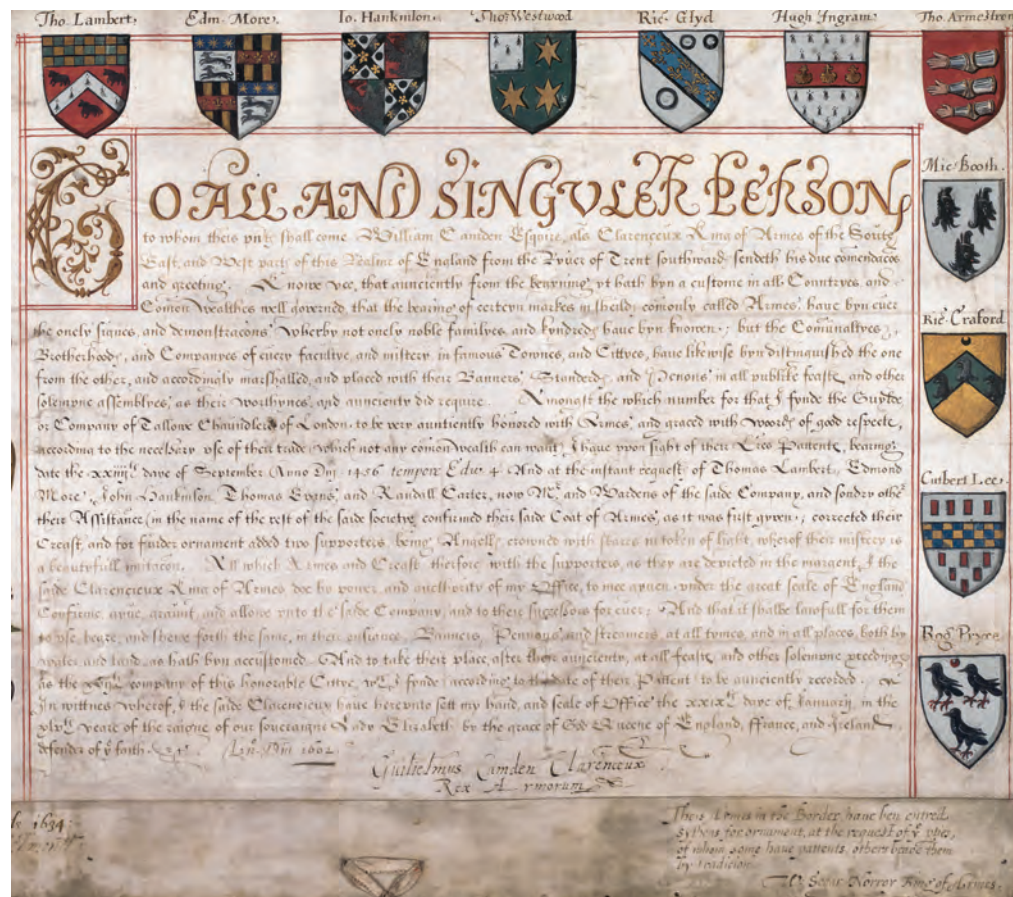 Tho. Lambert. Edm. More. Io. Hankinson. Tho. Westwood Ric. Glyd Hugh Ingram. Tho. Armestren
Mic. Booth.
Ric. Craford
Cutbert Lee.
Rog. Pryce
TO ALL AND SINGVLER PERSONS
to whom theis pnts shall come William Camden Esquire, als Clarenceux King of Armes of the South,
East, and West parts of this Realme of England from the Ryver of Trent southward sendeth his due comendacōs
and greeting. Knowe yee, that aunciently from the begynning yt hath byn a custome in all Countryes and
Comon Wealthes well governed, that the bearing of certeyn markes in sheilds comonly called Armes, have byn ever
the onely signes, and demonstracons wherby not onely noble familyes, and kyndreds have byn knowen; but the Comunaltyes,
Brotherhoods, and Companyes of every facultye, and mistery, in famous Townes, and Cittyes, have likewise byn distinguished the one
from the other, and accordingly marshalled, and placed with their Banners, Standerds, and Penons in all publike feasts, and other
solempne assemblyes, as their worthynes, and aunciently did require. Amongst the which number for that I fynde the
or Company of Tallowe Chaundlers of London, to be very aunciently honored with Armes, and graced with woords of good respecte,
according to the necessary use of their trade (which not any comon wealth can want) I have upon sight of their Lres Pattents, bearing
date the xxiiijth daye of September Anno Dni 1456 tempore Edw. 4. And at the instant request of Thomas Lambert, Edmond
More, John Hankinson, Thomas Evans, and Randall Carter, now Mr. and Wardens of the saide Company, and sondry othr
their Assistance (in the name of the rest of the saide societye) confirmed their saide Coat of Armes, as it was first gyven; corrected their
Creast, and for furder ornament added two supporters, being Angells crowned with starrs in token of light, wherof their mistery is
a beautyfull imitacon. All which Armes and Creast, therfore with the supporters, as they are depicted in the margent, I the
saide Clarencieux King of Armes doe by power, and aucthority of my Office, to mee gyven under the great seale of England
Confirme, gyve, graunt, and allowe unto the saide Company, and to their successors for ever; And that it shalbe lawfull for them
to use, beare, and shewe forth the same, in their ensignes, Banners, Pennons, and streamers, at all tymes, and in all places, both by
water and land, as hath byn accustomed. And to take their place, after their aunciently, at all feasts, and other solempne preedings
as the company of this honorable Cittye, wch I fynde (according to the date of their Pattent) to be aunciently recorded.
In wittnes wherof, I the saide Clarencieux have hereunto sett my hand, and seale of Office the xxixth daye of January, in the
xlvth yeare of the raigne of our soveraigne Lady Elizabeth by the grace of God Queene of England, ffrance, and Ireland
defender of ye faith. &c. An. Dni 1602
Guilielmus Camden Clarenceux
Rex Armorum
1634
Theis Armes in the Border have ben entred
sythens for ornament, at the request of ye ptyes,
of whom some have patents, others beare them
by tradicion
Segar Norroy King of Armes.